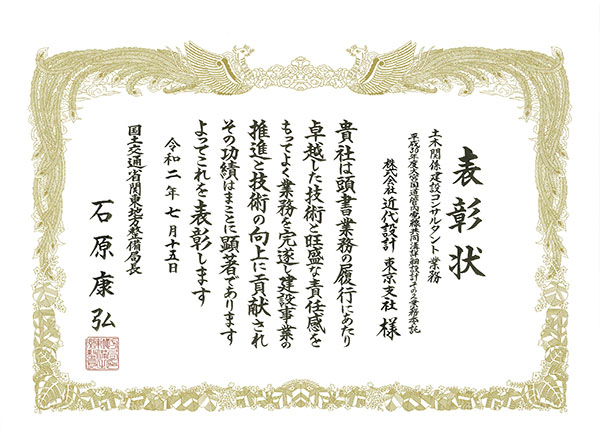 表彰状
土木関係建設コンサルタント業務
平成30年度大宮国道管内電線共同溝詳細設計その2業務委託
株式会社近代設計 東京支社 様
貴社は頭書業務の履行にあたり
卓越した技術と旺盛な責任感を
もってよく業務を完遂し建設事業の
推進と技術の向上に貢献され
その功績はまことに顕著であります
よってこれを表彰します
令和二年七月十五日
国土交通省関東地方整備局長
石原康弘